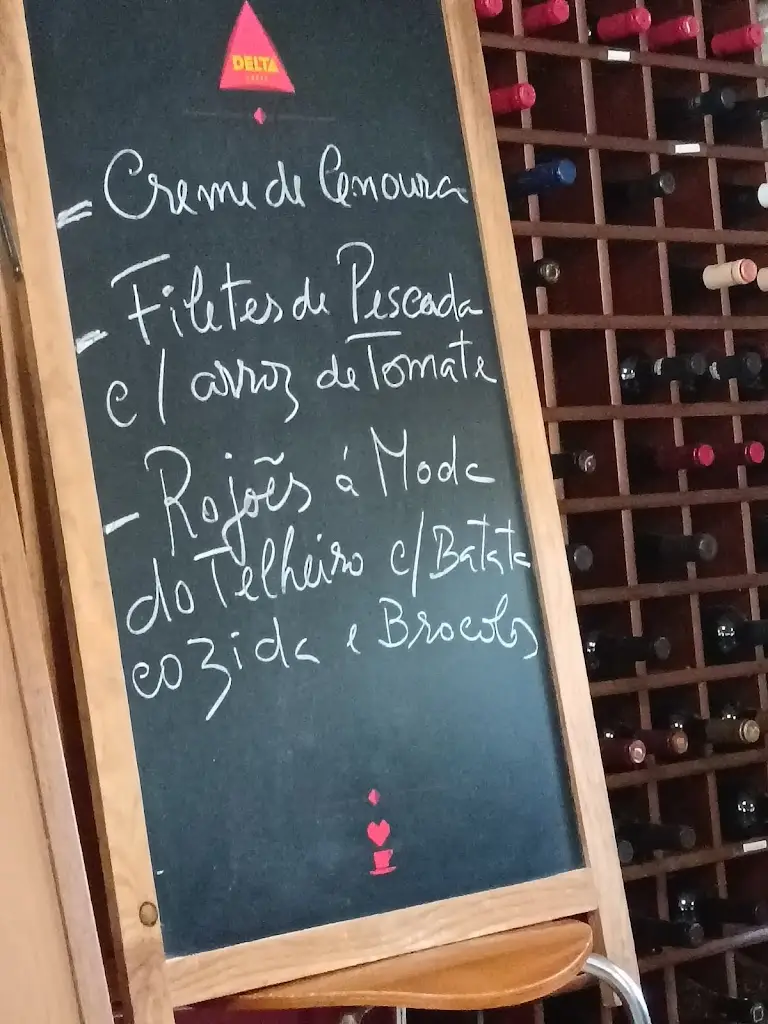 DELTA
- Creme de Cenoura
- Filetes de Pescada
c/ arroz de Tomate
- Rojões á Moda
do Telheiro c/ Batata
cozida e Brocolos